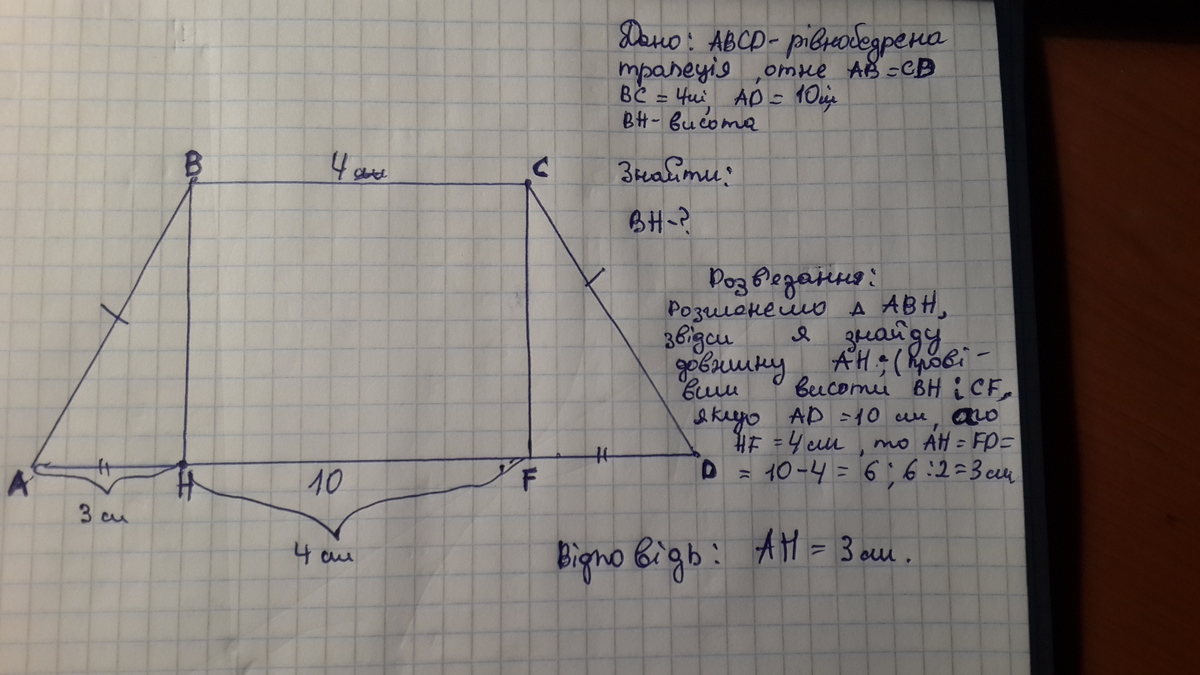 Дано: ABCD - рівнобедрена
трапеція, отже AB = CD
BC = 4см, AD = 10см,
BH - висота
Знайти:
BH - ?
B
4 см
C
Розв'язання:
Розглянемо Δ ABH,
звідси я знайду
довжину AH; (прові-
вши висоти BH і CF,
якщо AD = 10 см, а
HF = 4 см, то AH = FD =
= 10 - 4 = 6; 6 : 2 = 3 см
A
H
10
F
D
3 см
4 см
Відповідь: AH = 3 см.